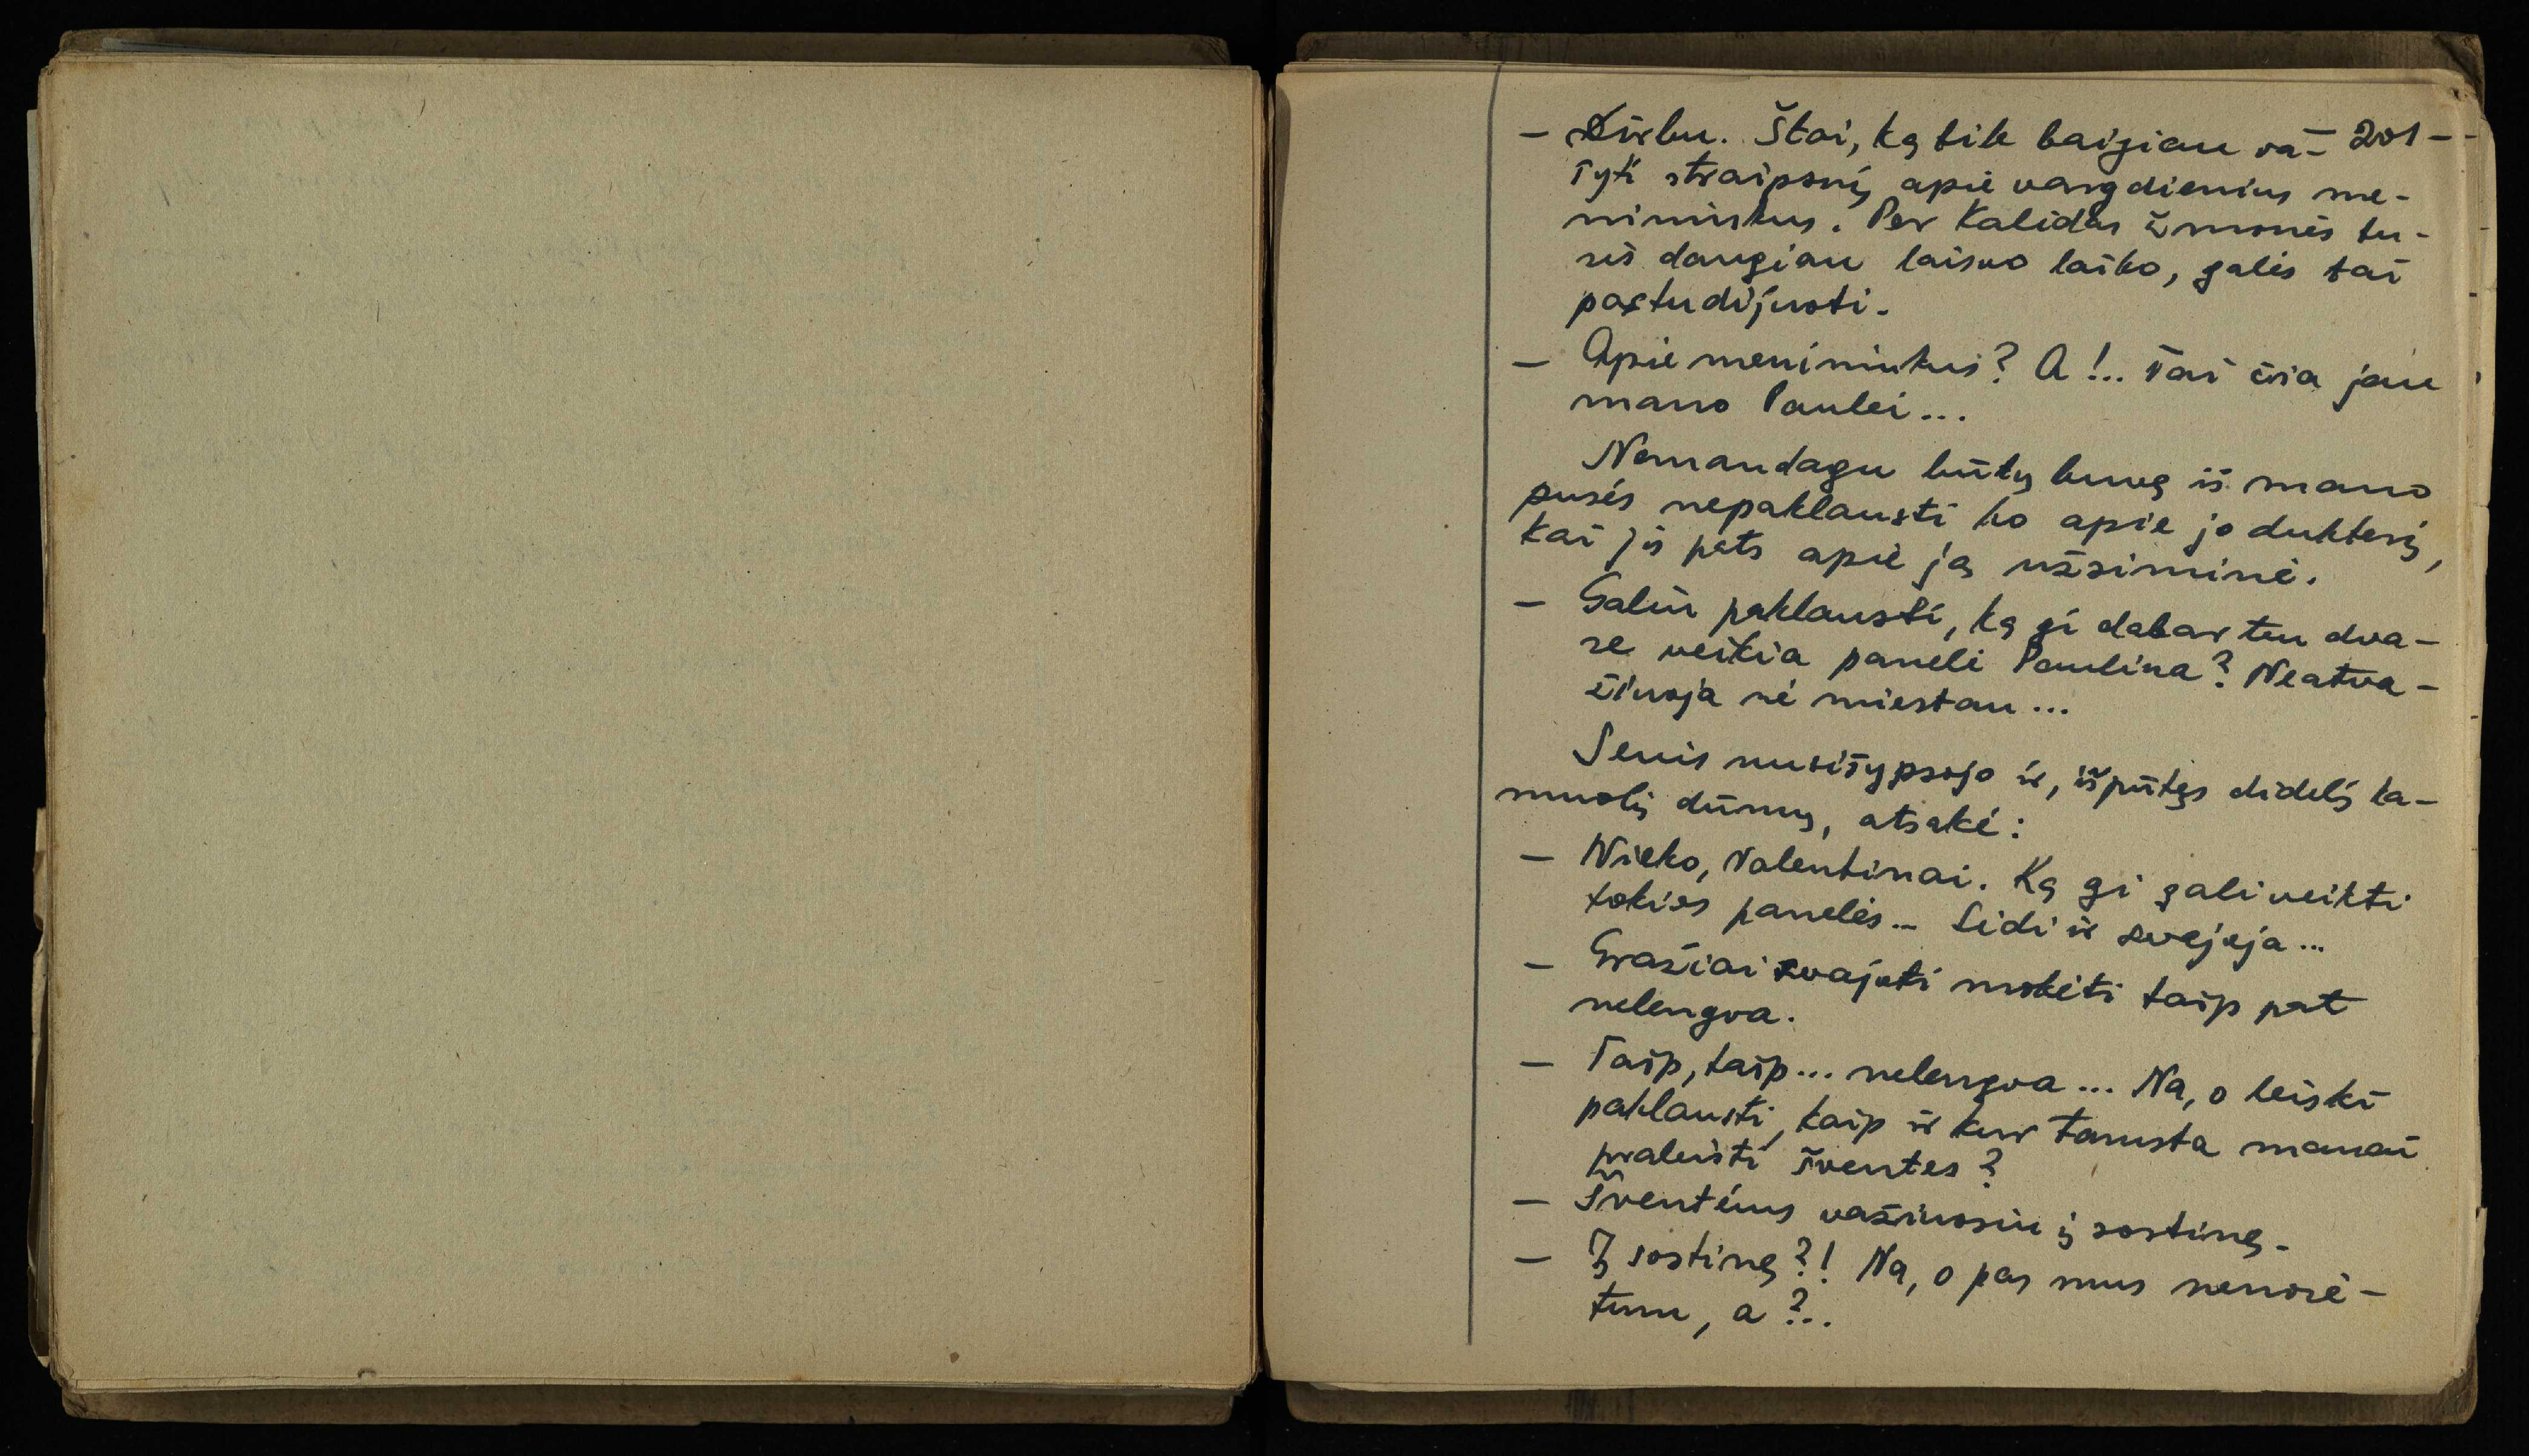 – Dirbu. Štai, ką tik baigiau ra- – 201 –
šyti straipsnį apie vargdienius me-
nininkus. Per Kalėdas žmonės tu-
rės daugiau laisvo laiko, galės tai
pastudijuoti.
– Apie menininkus? A!.. Tai čia jau
mano Paulei...
Nemandagu būtų buvę iš mano
pusės nepaklausti jo apie jo dukterį,
kai jis pats apie ją užsiminė.
– Galiu paklausti, ką gi dabar ten dva-
re veikia panelė Paulina? Neatva-
žiuoja nė miestan...
Senis nusišypsojo ir, išpūtęs didelį ka-
muolį dūmų, atsakė:
– Nieko, Valentinai. Ką gi gali veikti
tokios panelės – Sėdi ir svajoja...
– Gražiai svajoti mokėti taip pat
nelengva.
– Taip, taip... nelengva... Na, o leiski
paklausti, kaip ir kur Tamsta manai
praleisti šventes?
– Šventėms važiuosiu į sostinę.
– Į sostinę?! Na, o pas mus nenorė-
tum, a?..